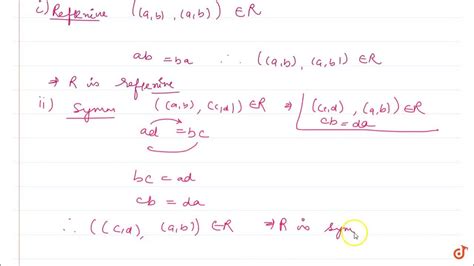 i) Reflexive ((a,b), (a,b)) ∈R
ab = ba ∴ ((a,b), (a,b)) ∈R
⇒ R is reflexive
ii) Symm ((a,b), (c,d)) ∈R ⇒ ((c,d), (a,b)) ∈R
cb = da
ad = bc
bc = ad
cb = da
∴ ((c,d), (a,b)) ∈R ⇒ R is sym